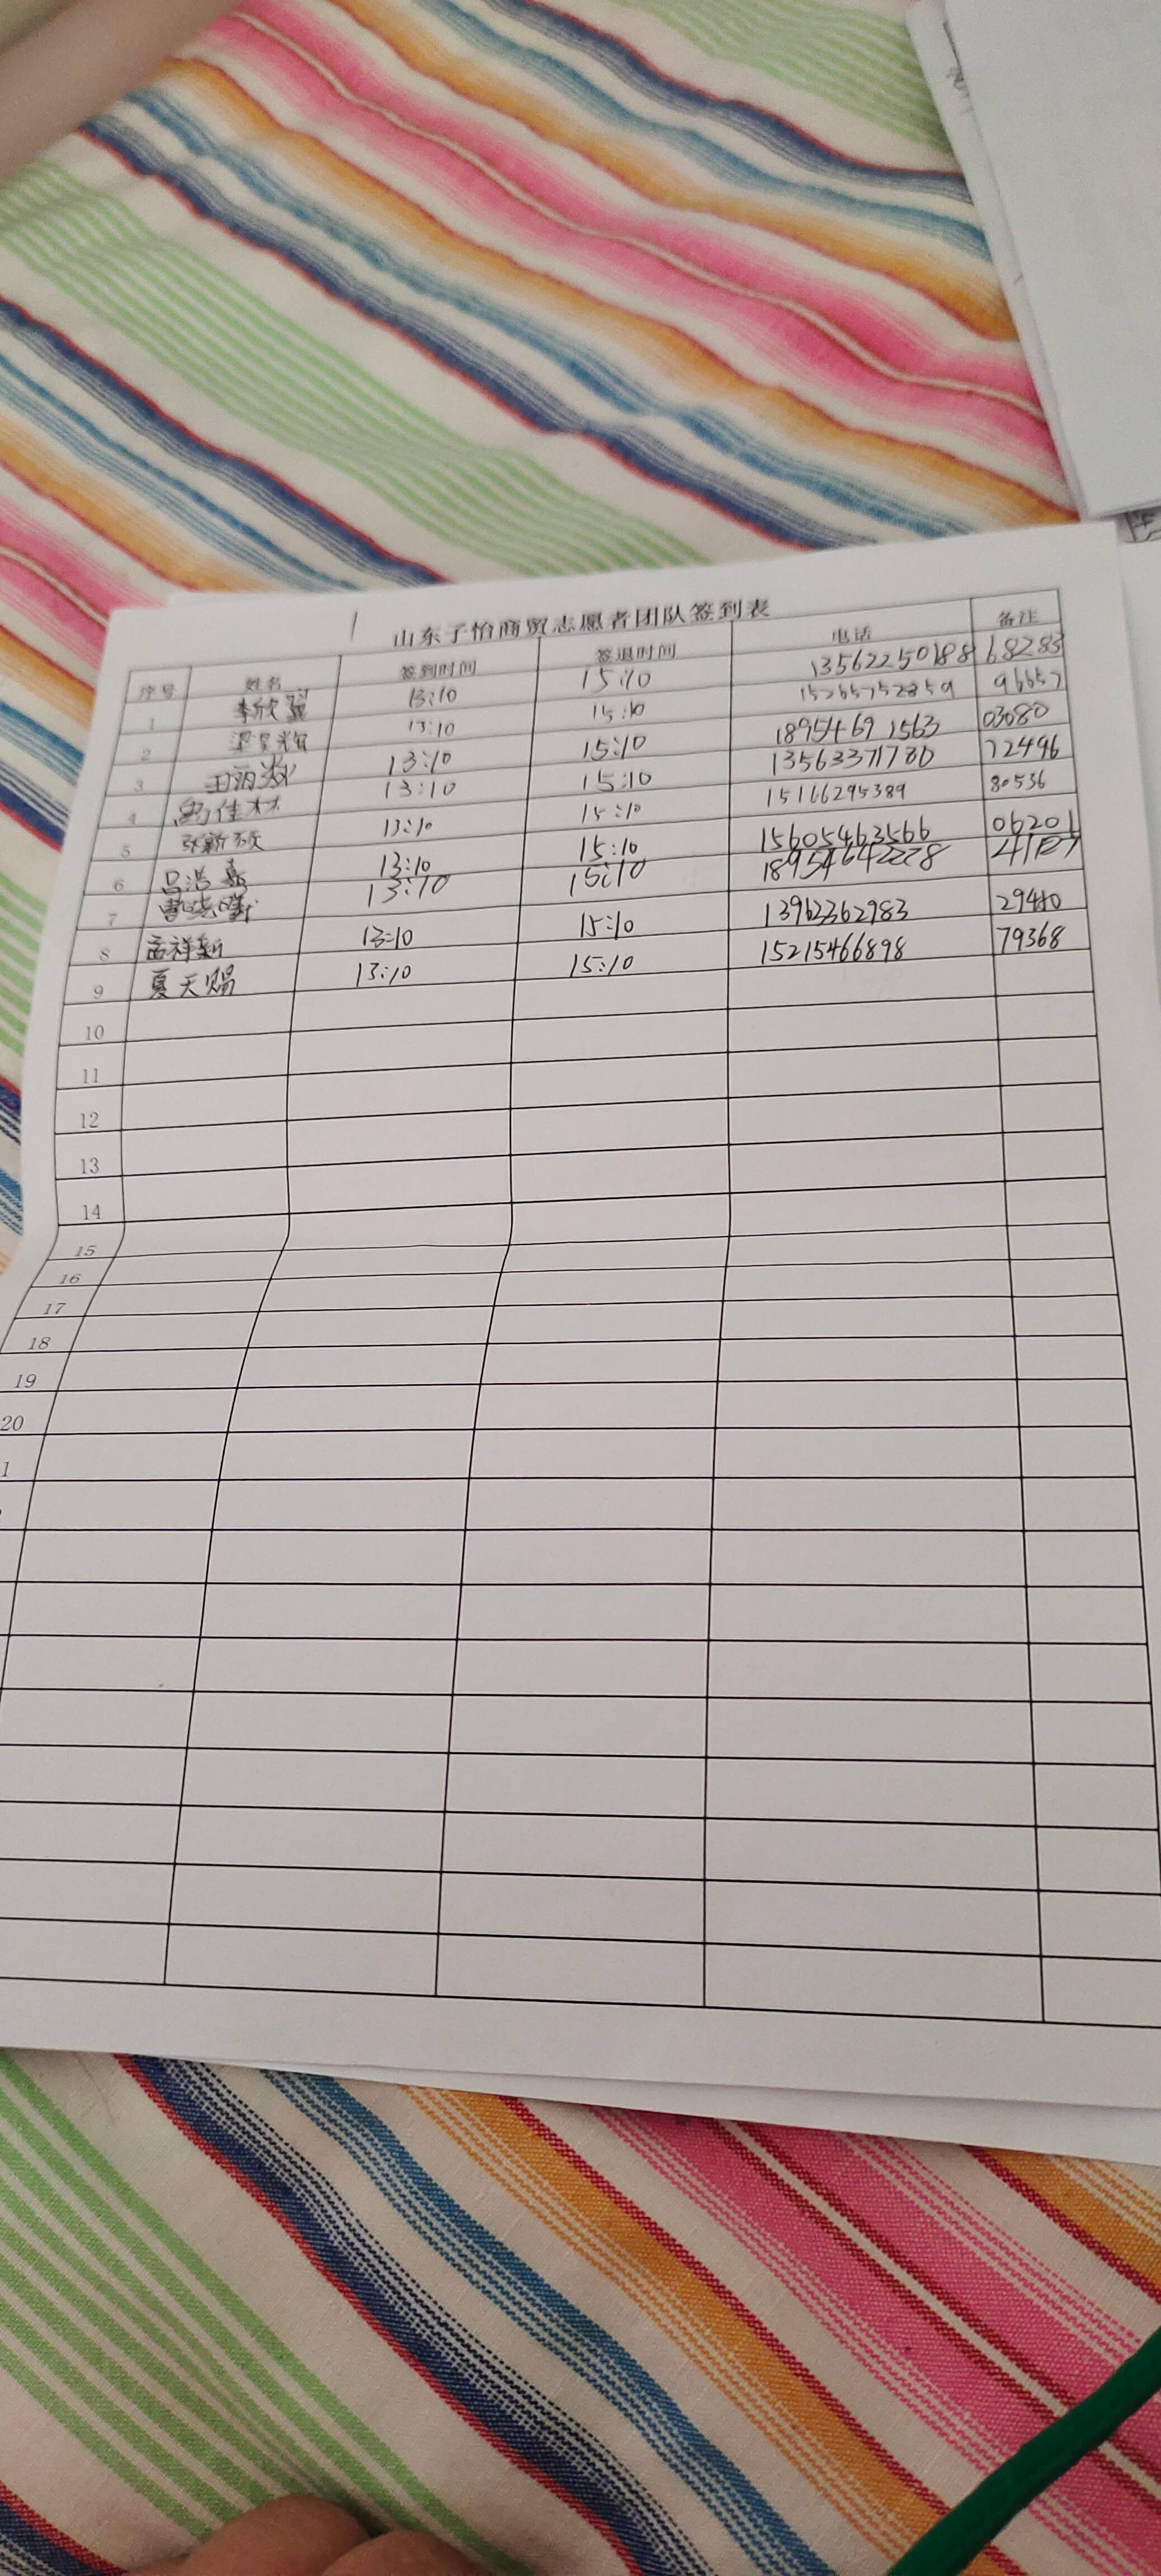 山东子怡商贸志愿者团队签到表
序号 姓名 签到时间 签退时间 电话 备注
1 李欣翼 13:10 15:10 13562250188 68283
2 13:10 15:10 15265752859 96657
3 13:10 15:10 18954691563 03080
4 佳林 13:10 15:10 13563371780 72496
5 张新硕 13:10 15:10 15166295389 80536
6 吕浩嘉 13:10 15:10 15605463566 06201
7 13:10 15:10 18954642228
8 孟祥新 13:10 15:10 13962362983 29480
9 夏天赐 13:10 15:10 15215466898 79368
10
11
12
13
14
15
16
17
18
19
20
1